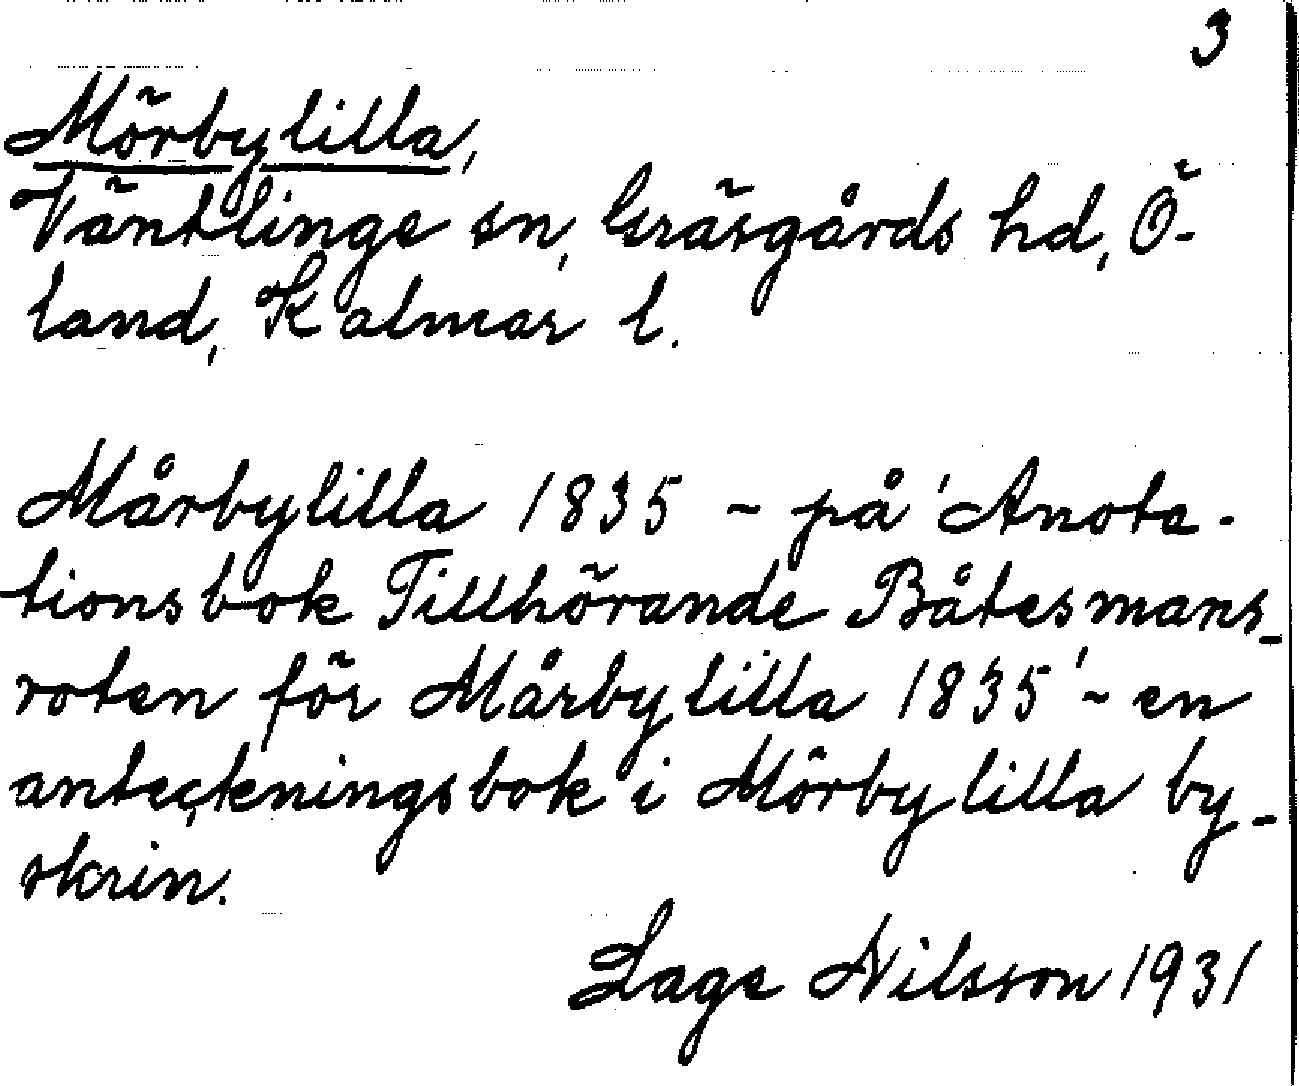 3
Mörbylilla,
Väntlinge sn, Gräsgårds hd, Ö-
land, Kalmar l.
Mårbylilla 1835 - på 'Anota-
tionsbok Tillhörande Båtesmans-
roten för Mårbylilla 1835' - en
anteckningsbok i Mörbylilla by-
skrin.
Lage Nilsson 1931